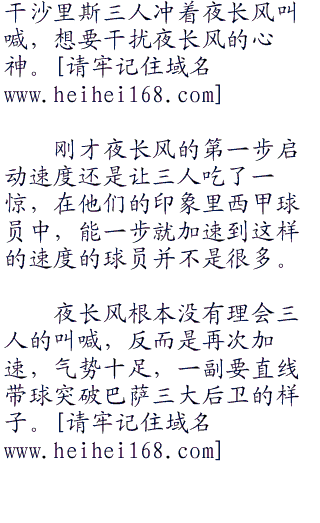 干沙里斯三人冲着夜长风叫
喊，想要干扰夜长风的心
神。[请牢记住域名
www.heihei168.com]
刚才夜长风的第一步启
动速度还是让三人吃了一
惊，在他们的印象里西甲球
员中，能一步就加速到这样
的速度的球员并不是很多。
夜长风根本没有理会三
人的叫喊，反而是再次加
速，气势十足，一副要直线
带球突破巴萨三大后卫的样
子。[请牢记住域名
www.heihei168.com]